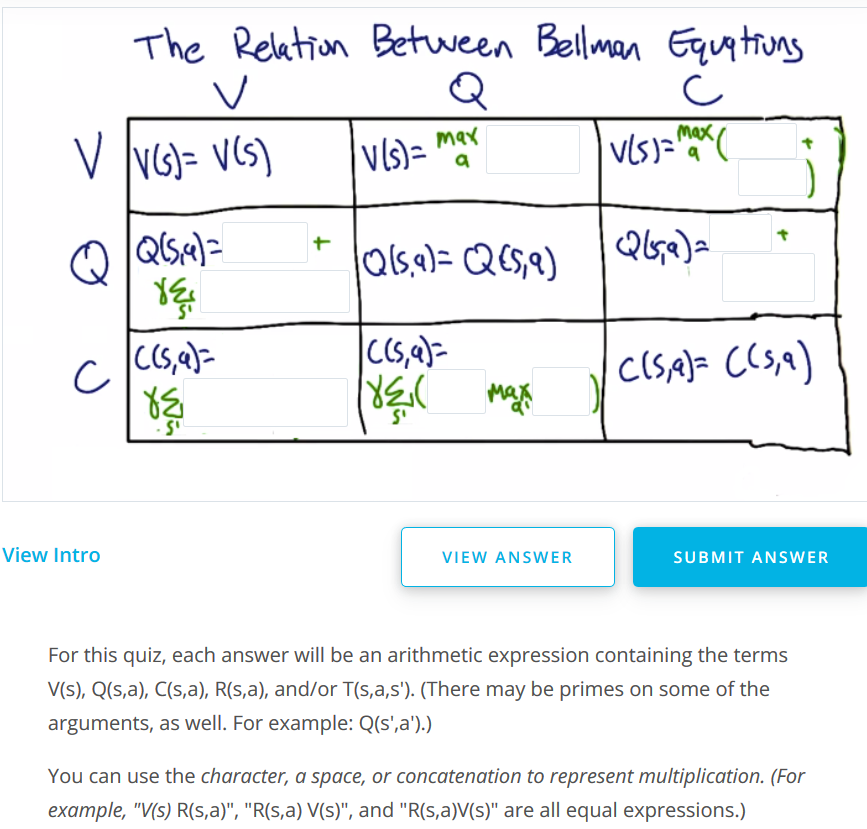 The Relation Between Bellman Equations
V Q C
V V(s)= V(s) V(s)= max a V(s)= max a ( + )
Q Q(s,a)= + γΣ s' Q(s,a)= Q(s,a) Q(s,a)= +
C C(s,a)= γΣ s' C(s,a)= γΣ s' ( max a' ) C(s,a)= C(s,a)
View Intro
VIEW ANSWER
SUBMIT ANSWER
For this quiz, each answer will be an arithmetic expression containing the terms
V(s), Q(s,a), C(s,a), R(s,a), and/or T(s,a,s'). (There may be primes on some of the
arguments, as well. For example: Q(s',a').)
You can use the character, a space, or concatenation to represent multiplication. (For
example, "V(s) R(s,a)", "R(s,a) V(s)", and "R(s,a)V(s)" are all equal expressions.)